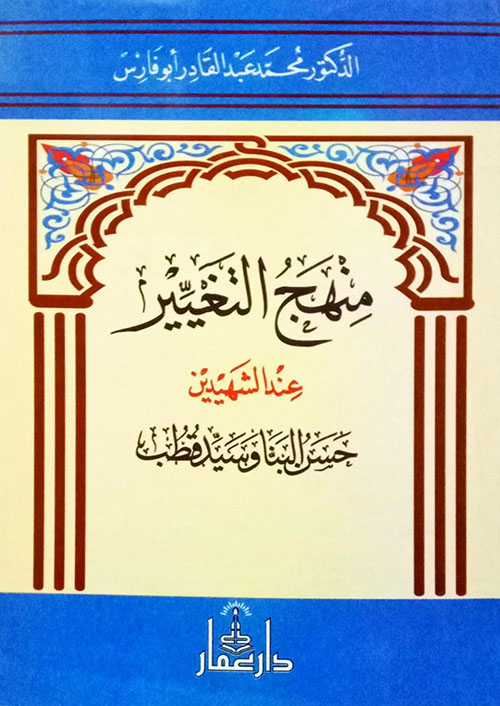 الدكتور محمد عبد القادر أبو فارس
منهج التغيير
عند الشهيدين
حسن البنا وسيد قطب
دار عمار